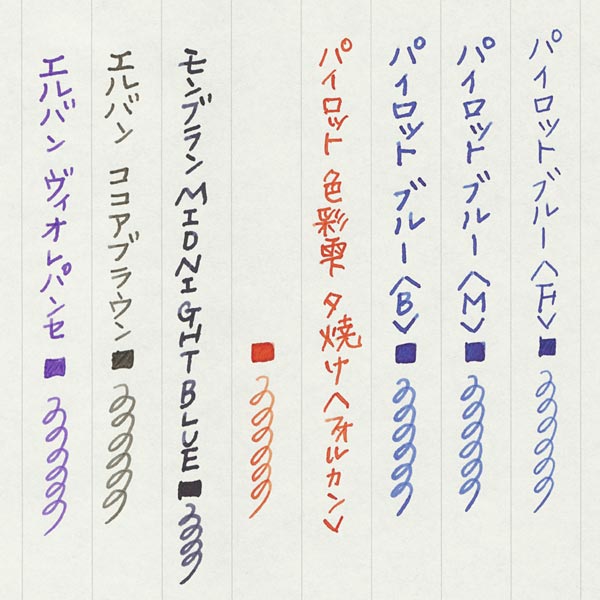 パイロット ブルー〈F〉
パイロット ブルー〈M〉
パイロット ブルー〈B〉
パイロット 色彩雫 夕焼け〈フォルカン〉
モンブラン MIDNIGHT BLUE
エルバン ココアブラウン
エルバン ヴィオレパンセ